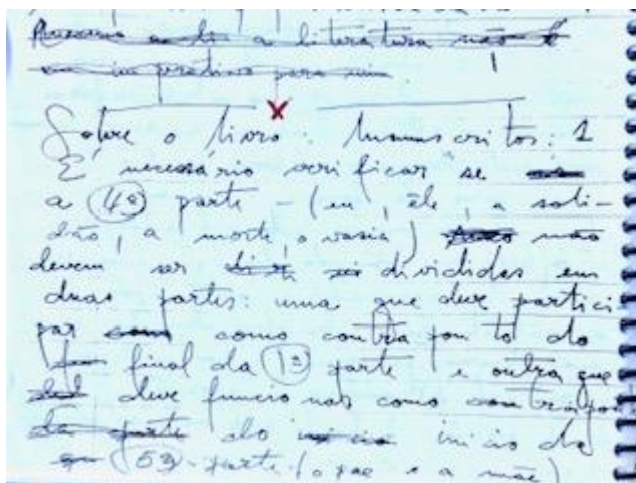 a literatura não é
para mim
Sobre o livro: Manuscritos: 1
É necessário verificar se
a (4ª) parte - (eu, êle, a soli-
dão, a morte, o vasio) não
devem ser divididas em
duas partes: uma que deve partici
par como contra pon to do
final da (1ª) parte e outra que
deve funcionar como contrapon
da parte do inicio da
(5ª) parte (o pae e a mãe)